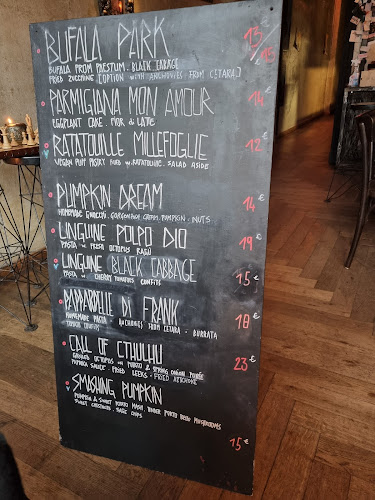 BUFALA PARK 13/15 €
BUFALA FROM PAESTUM. BLACK CABAGE
FRIED ZUCCHINI [OPTION WITH ANCHOVIES FROM CETARA]
PARMIGIANA MON AMOUR 14 €
EGGPLANT CAKE. MOR & LATE
RATATOUILLE MILLEFOGLIE 12 €
VEGAN PUFF PASTRY W. RATATOUILLE. SALAD ASIDE
PUMPKIN DREAM 14 €
HOMEMADE GNOCCHI. GORGONZOLA CREAM. PUMPKIN. NUTS
LINGUINE POLPO DIO 19 €
PASTA W. FRESH OCTOPUS RAGÙ
LINGUINE BLACK CABBAGE 15 €
PASTA W. CHERRY TOMATOES CONFITS
PAPPARDELLE DI FRANK 18 €
HOMEMADE PASTA. ANCHOVIES FROM CETARA. BURRATA
TOMATOE CONFITS
CALL OF CTHULHU 23 €
GRILLED OCTOPUS W. POTATO & SPRING ONION PURÉE
PAPRIKA SAUCE. FRIED LEEKS. FRIED ARTICHOKE
SMASHING PUMPKIN 15 €
PUMPKIN & SWEET POTATO MASH, PORTO MUSHROOMS
SWEET CHESTNUT. SAGE CHIPS